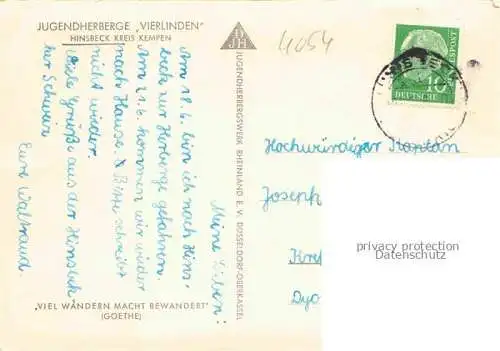 JUGENDHERBERGE „VIERLINDEN"
HINSBECK KREIS KEMPEN
Meine Lieben!
Am 18.6. bin ich nach Hins-
beck zur Herberge gefahren.
Am 21.6. kommen wir wieder
nach Hause. Bitte schreibt
nicht wieder.
Viele Grüße aus der Hinsbeck
her Schweiz
Eure Waltraud.
„VIEL WANDERN MACHT BEWANDERT"
(GOETHE)
DJH
JUGENDHERBERGSWERK RHEINLAND E. V. DÜSSELDORF-OBERKASSEL
4054
10
DEUTSCHE
BUNDESPOST
Hochwürdiger Kaplan
Joseph
Kref
privacy protection
Datenschutz